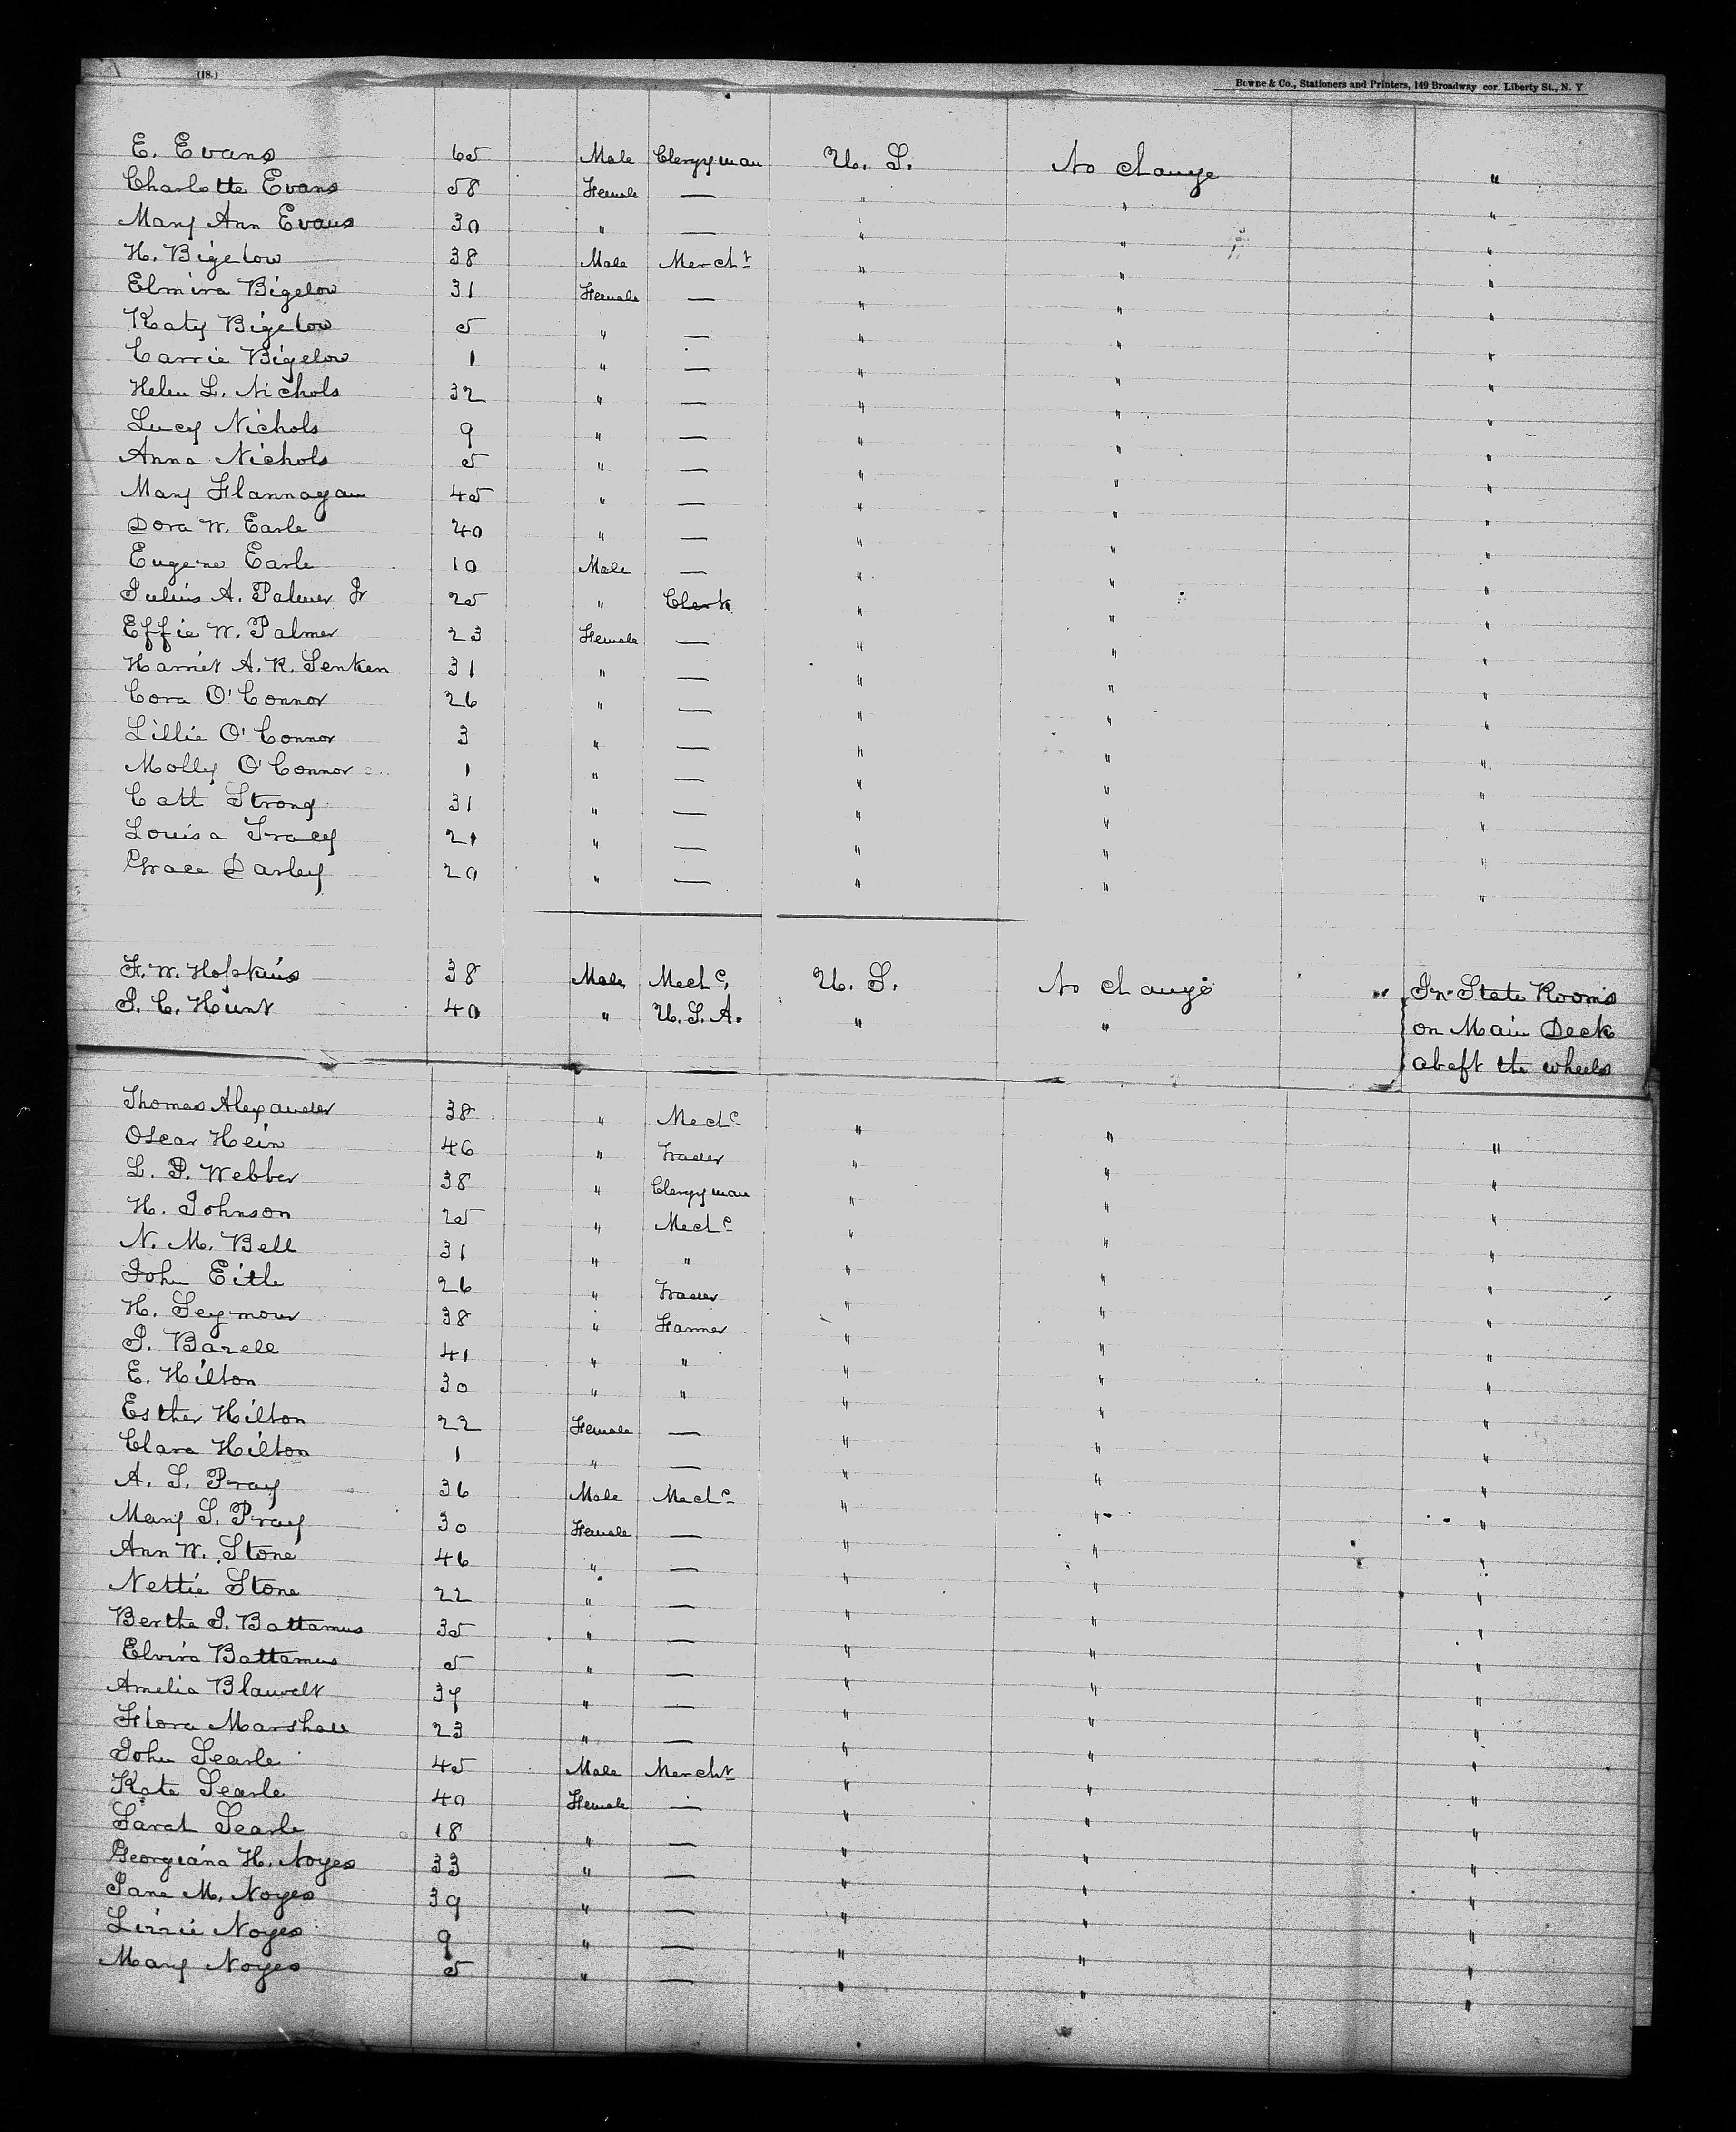 (18.)
Bowne & Co., Stationers and Printers, 149 Broadway cor. Liberty St., N. Y
E. Evans 65 Male Clergyman U. S. No change "
Charlotte Evans 58 Female — " " "
Mary Ann Evans 30 " — " " "
H. Bigelow 38 Male Mercht " " "
Elmira Bigelow 31 Female — " " "
Katy Bigelow 5 " — " " "
Carrie Bigelow 1 " — " " "
Helen L. Nichols 32 " — " " "
Lucy Nichols 9 " — " " "
Anna Nichols 5 " — " " "
Mary Flannagan 45 " — " " "
Dora W. Earle 40 " — " " "
Eugene Earle 10 Male — " " "
Julius A. Palmer Jr 25 " Clerk " " "
Effie W. Palmer 23 Female — " " "
Harriet A. K. Senken 31 " — " " "
Cora O'Connor 26 " — " " "
Lillie O'Connor 3 " — " " "
Molly O'Connor 1 " — " " "
Catt Strong 31 " — " " "
Louisa Tracy 21 " — " " "
Grace Darley 20 " — " " "
F. W. Hopkins 38 Male Mechc. U. S. No change " In State Rooms
J. C. Hunt 40 " U. S. A. " " on Main Deck
abaft the wheels
Thomas Alexander 38 " Mechc " " "
Oscar Hein 46 " Trader " " "
L. P. Webber 38 " Clergyman " " "
H. Johnson 25 " Mechc " " "
N. M. Bell 31 " " " " "
John Eitle 26 " Trader " " "
H. Seymour 38 " Farmer " " "
J. Barell 41 " " " " "
E. Hilton 30 " " " " "
Esther Hilton 22 Female — " " "
Clara Hilton 1 " — " " "
A. S. Pray 36 Male Mechc " " "
Mary S. Pray 30 Female — " " "
Ann W. Stone 46 " — " " "
Nettie Stone 22 " — " " "
Bertha J. Battamus 35 " — " " "
Elvira Battamus 5 " — " " "
Amelia Blauvelt 37 " — " " "
Flora Marshall 23 " — " " "
John Searle 45 Male Mercht " " "
Kate Searle 40 Female — " " "
Sarah Searle 18 " — " " "
Georgiana H. Noyes 33 " — " " "
Jane M. Noyes 39 " — " " "
Lizzie Noyes 9 " — " " "
Mary Noyes 5 " — " " "